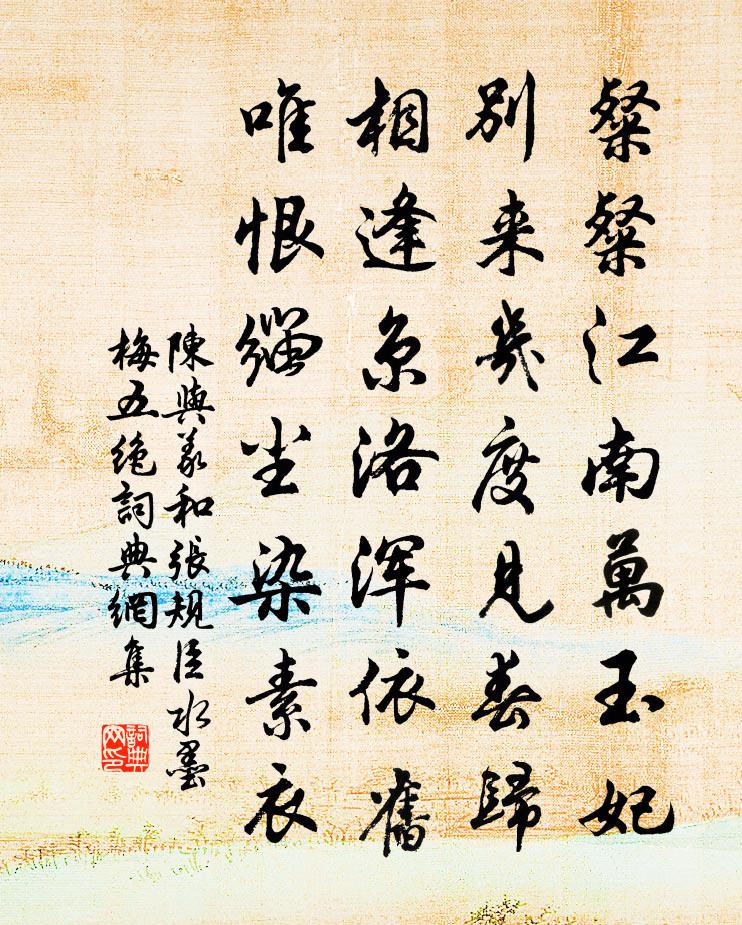 粲粲江南萬玉妃
別来幾度見春歸
相逢京洛渾依舊
唯恨緇尘染素衣
陳與義和張規臣水墨
梅五絶詞典網集
詞典网印